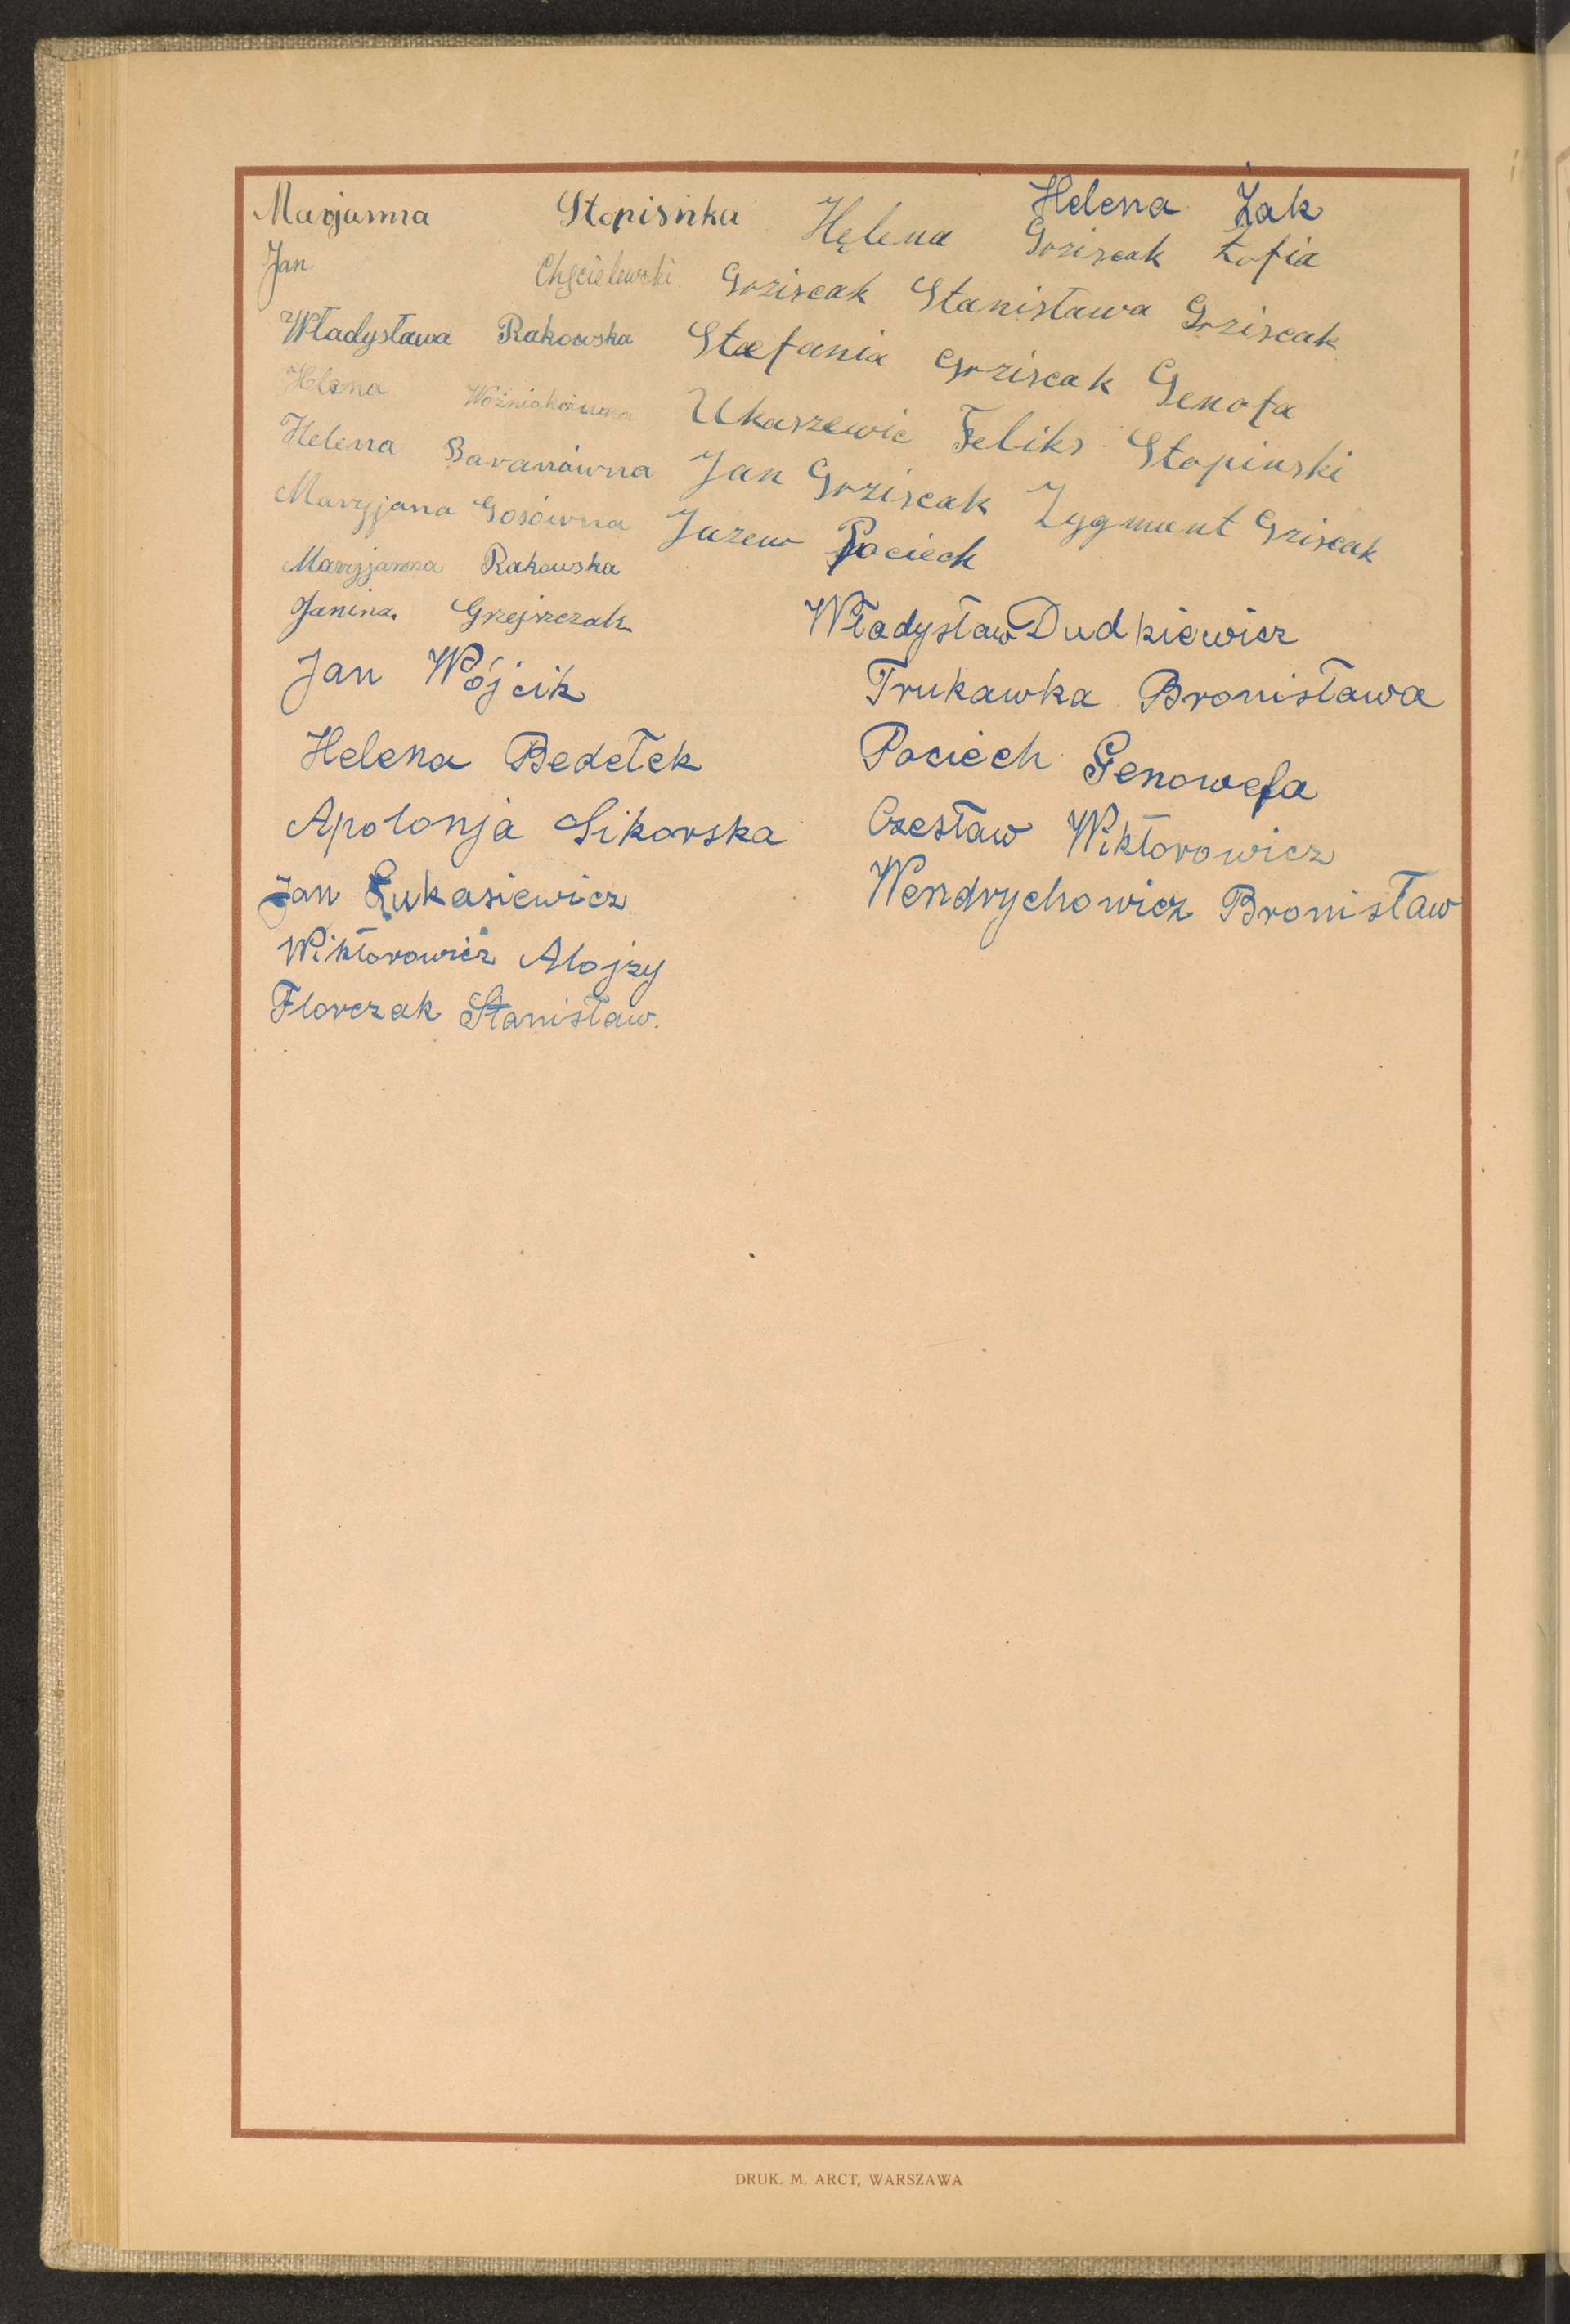 Marjanna Stopisnka
Jan Chęcielewski
Władysława Rakowska
Helena Woźniakówna
Helena Baranówna
Maryjana Gosówna
Maryjanna Rakowska
Janina Grzejszczak
Jan Wójcik
Helena Bedełek
Apolonja Sikorska
Jan Łukasiewicz
Wiktorowicz Alojzy
Florczak Stanisław.
Helena Żak
Hęlena Grziscak Zofia
Grziscak Stanisława Grziscak
Staefania Grziscak Genofa
Ukaszewic Feliks Stopinski
Jan Grziscak Zygmunt Griscak
Juzew Pociech
Władysław Dudkiewicz
Trukawka Bronisława
Pociech Genowefa
Czesław Wiktorowicz
Wendrychowicz Bronisław
DRUK. M. ARCT, WARSZAWA